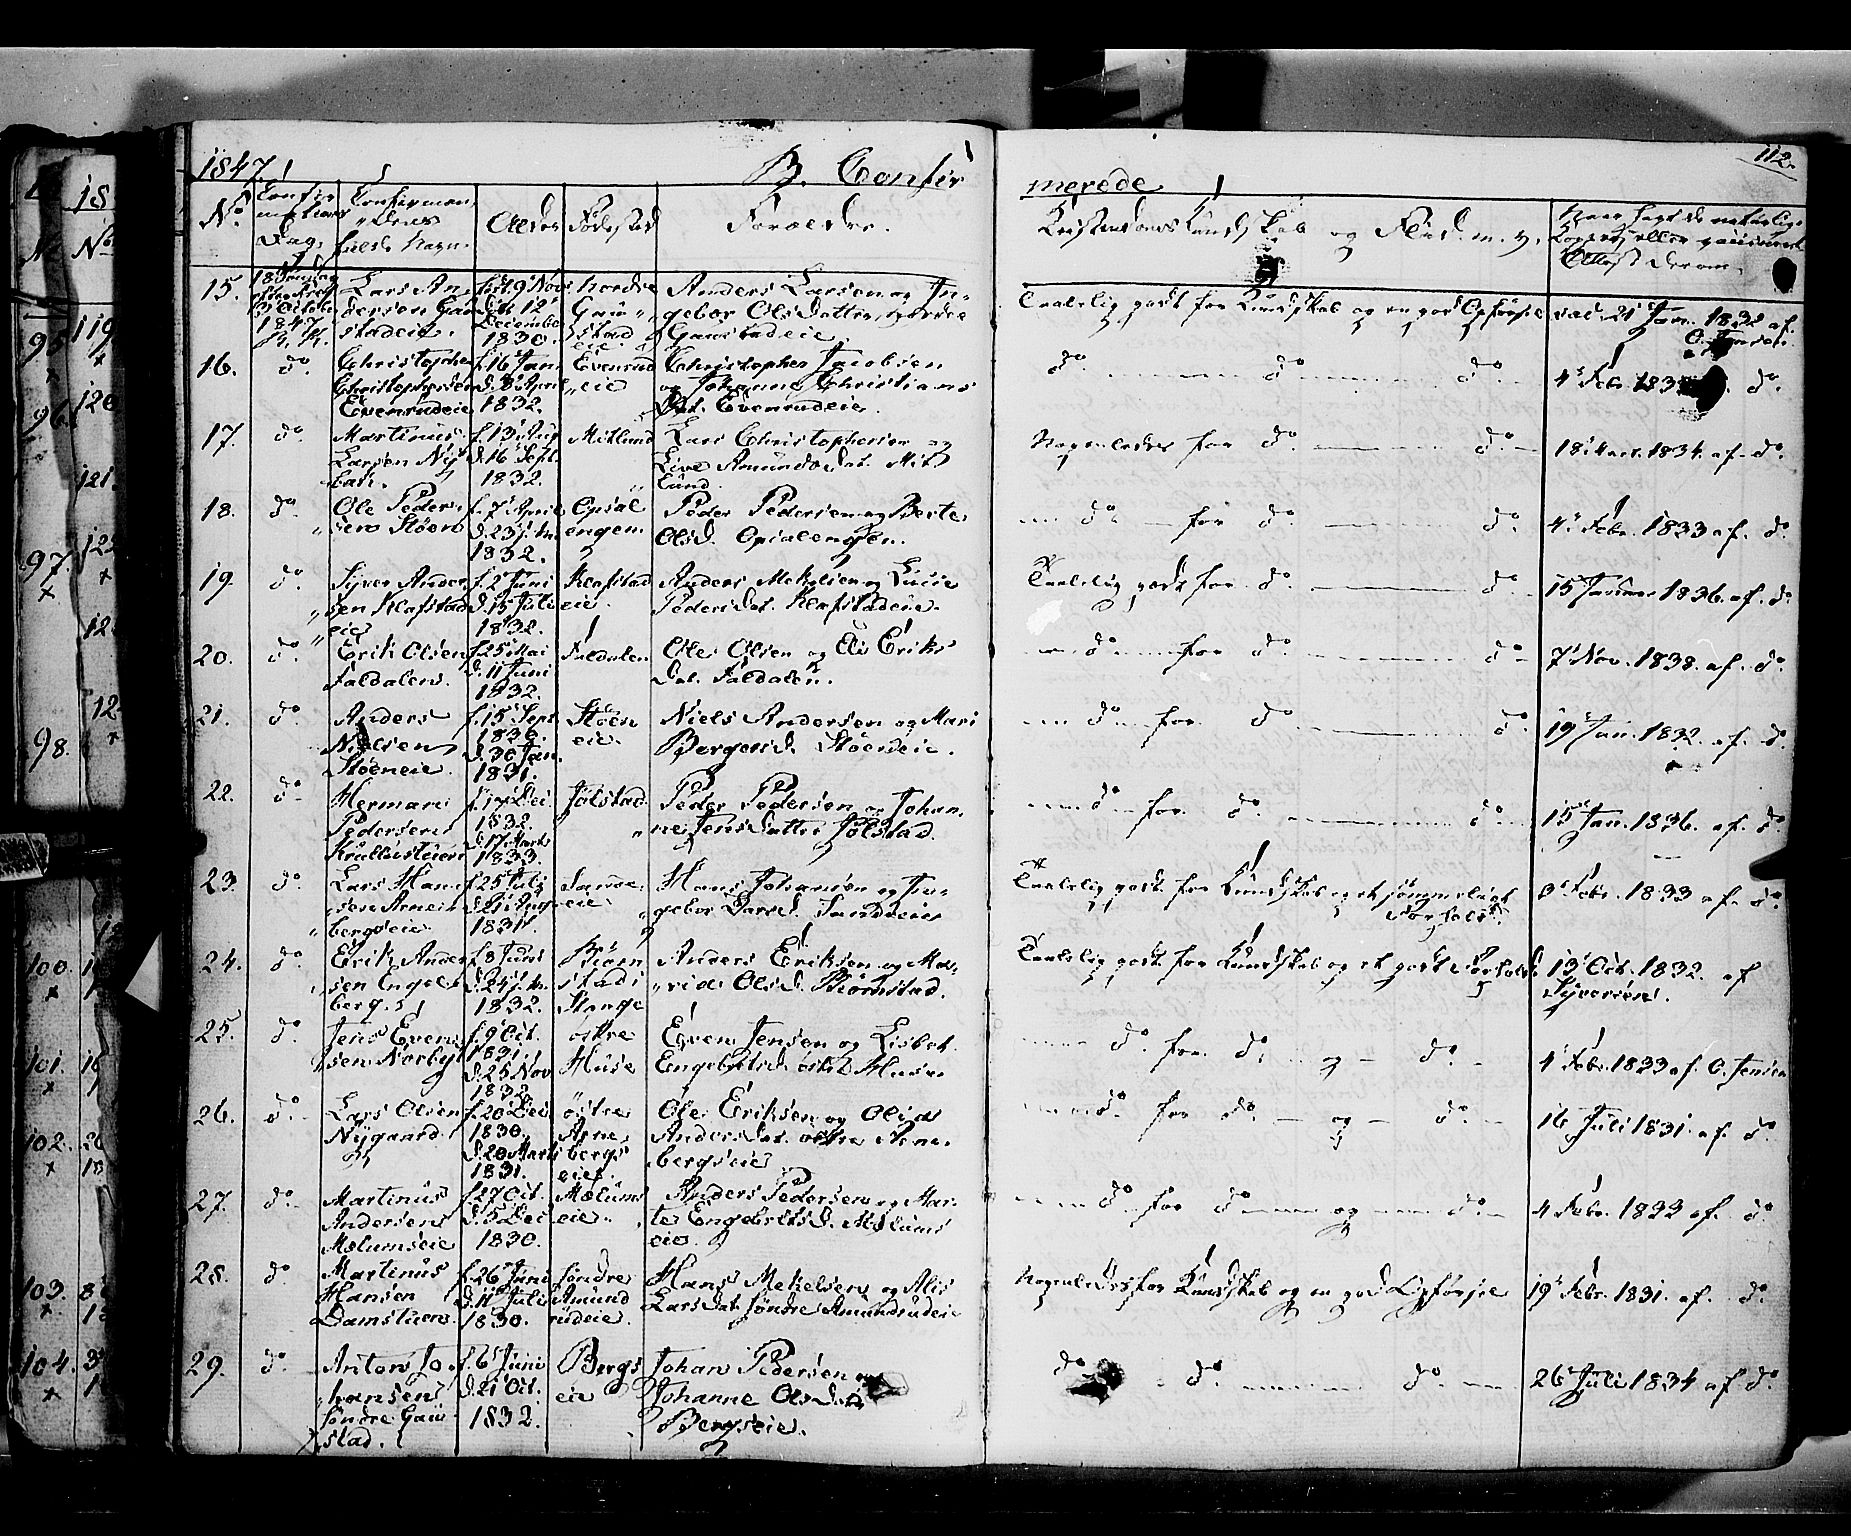 1847. B. Confir
merede 112.
No. Confirmations Dag. Confirmandernes fulde Navn. Alder Fødested Forældre.
Kristendoms Kundskab og Flid m. v. Naar havt de naturlige Kopper eller vaccineret Attest derom.
15. 1847 Lars Andersen Gaustadeie. fød 9 Nov. døbt 12 December 1830. Nordre Gaustadeie Anders Larsen og Ingebor Olsdatter, nordre Gaustadeie.
Taalelig godt for Kundskab og en god Opførsel vac. 21 Jan. 1832 af O. Jensen.
16. do. Christopher Christophersen Evenrudeie f. 16 Jan d. 8 April 1832. Evenrudeie Christopher Jacobsen og Johanne Christians Dat. Evenrudeie.
do. do. do. 4 Febr. 183 do.
17. do. Martinus Larsen f. 13 Aug d. 16 Sept. 1832. Midlund Lars Christophersen og Live Amunds Dat. Midlund.
Nogenledes for do. do. 18 Mart. 1834. af do.
18. do. Ole Pedersen Støen f. 7 April d. 23 1832. Opsalengen Peder Pedersen og Berte Olsd. Opsalengen.
do. for do. do. 4 Febr. 1833 af. do.
19. do. Syver Andersen Klafstadeie f. 2 Juni d. 15 Juli 1832. Klafstadeie. Anders Mekelsen og Lucie Peders Dat. Klafstadeie.
Taalelig godt for do. do. 15 Januar 1836. af. do.
20. do. Erik Olsen Faldalen. f. 25 Mai d. 11 Juni 1832. Faldalen Ole Olsen og Eriks Dat. Faldalen.
do. for do. do. 7 Nov. 1838. af do.
21. do. Anders Nielsen Støeneie. f. 15 Sept 1830. d. 30 Jan. 1831. Støeneie. Niels Andersen og Mari Støeneie.
do. for. do. do. 19 Jan. 1832. af do.
22. do. Herman Pedersen f. 17 Dec. 1832. d. 17 Marts 1833. Jølstad. Peder Pedersen og Johanne Jensdatter Jølstad.
do. for. do. do. 15 Jan. 1836. af. do.
23. do. Lars Hansen Arnebergseie. f. 25 Juli d. 21 Aug 1831. Hans Johansen og Ingebor Larsd.
Taalelig godt for Kundskab og et sømmeligt Forhold. Febr. 1833 af. do.
24. do. Erik Andersen Engelsberg. f. 8 Juni d. 24 1832. Biørnstad i Stange Anders Eriksen og Olsd. Biørnstad.
Taalelig godt for Kundskab og et godt Forhold 13 Oct. 1832. af Syversen.
25. do. Jens Evensen Norbye f. 9 Oct. 1831. d. 25 Nov 1832. østre Huse Even Jensen og Lisbet Engebretsd. østre Huse.
do. for. do. og do. 4 Febr. 1833 af. O. Jensen
26. do. Lars Olsen Nygaard f. 20 Dec. 1830. d. 20 Marts 1831. østre Arnebergseie. Ole Eriksen og Anders Dat. østre Arnebergseie
do. for do. og do. 16 Juli 1831. af. do.
27. do. Martinus Andersen Mælumseie f. 27 Oct. d. 5 Dec 1830. Mælumseie. Anders Pedersen og Marte Engebretsd. Mælumseie.
do. for do. og do. 4 Febr. 1832 af. do.
28. do. Martinus Hansen Damstuen f. 26 Juni d. 11 Juli 1830. søndre Amundrudeie. Hans Mekelsen og Alis Larsdat. søndre Amundrudeie
Nogenledes for Kundskab og en god Opførsel 19 Febr. 1831. af. do.
29. do. Anton Johansen søndre Gaustad. f. 6 Juni d. 21 Oct. 1832. Bergseie Johan Pedersen og Johanne Olsdat. Bergseie.
do. do. do. 26 Juli 1834 af do.
95.
96.
97.
98.
100.
101.
102.
103.
104.
119.
120
121.